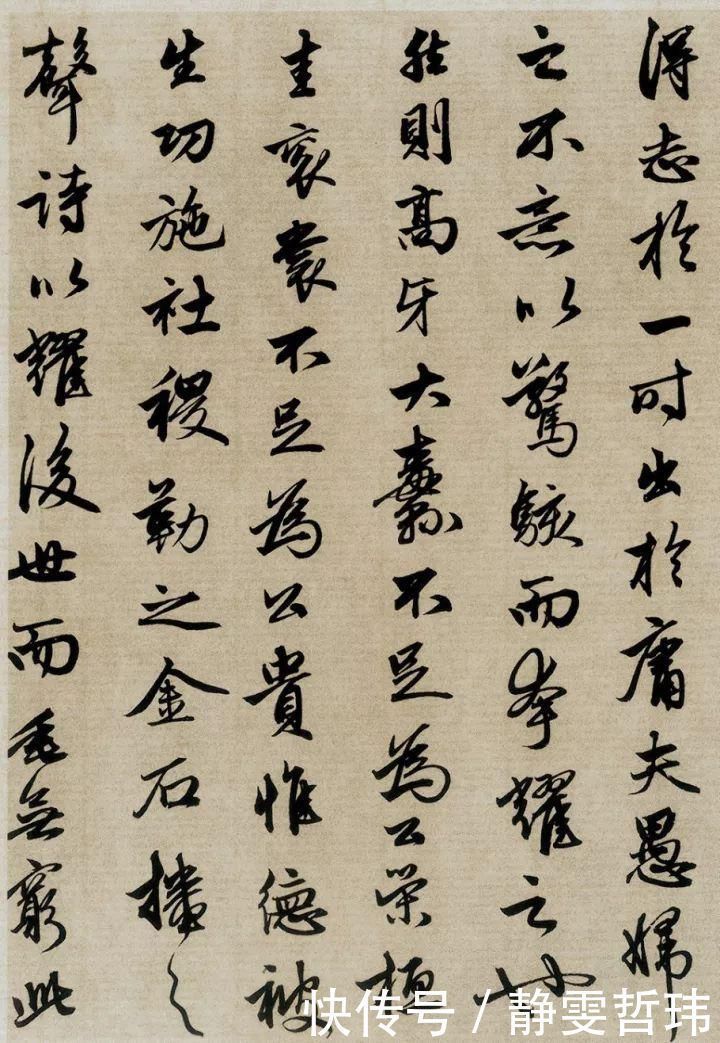 得志於一时出於庸夫愚婦
之不意以驚駭而夸耀之也
然則高牙大纛不足為公榮桓
圭衮裳不足為公貴惟德被
生功施社稷勒之金石播之
聲詩以耀後世而垂無窮此
快传号 / 静雯哲玮